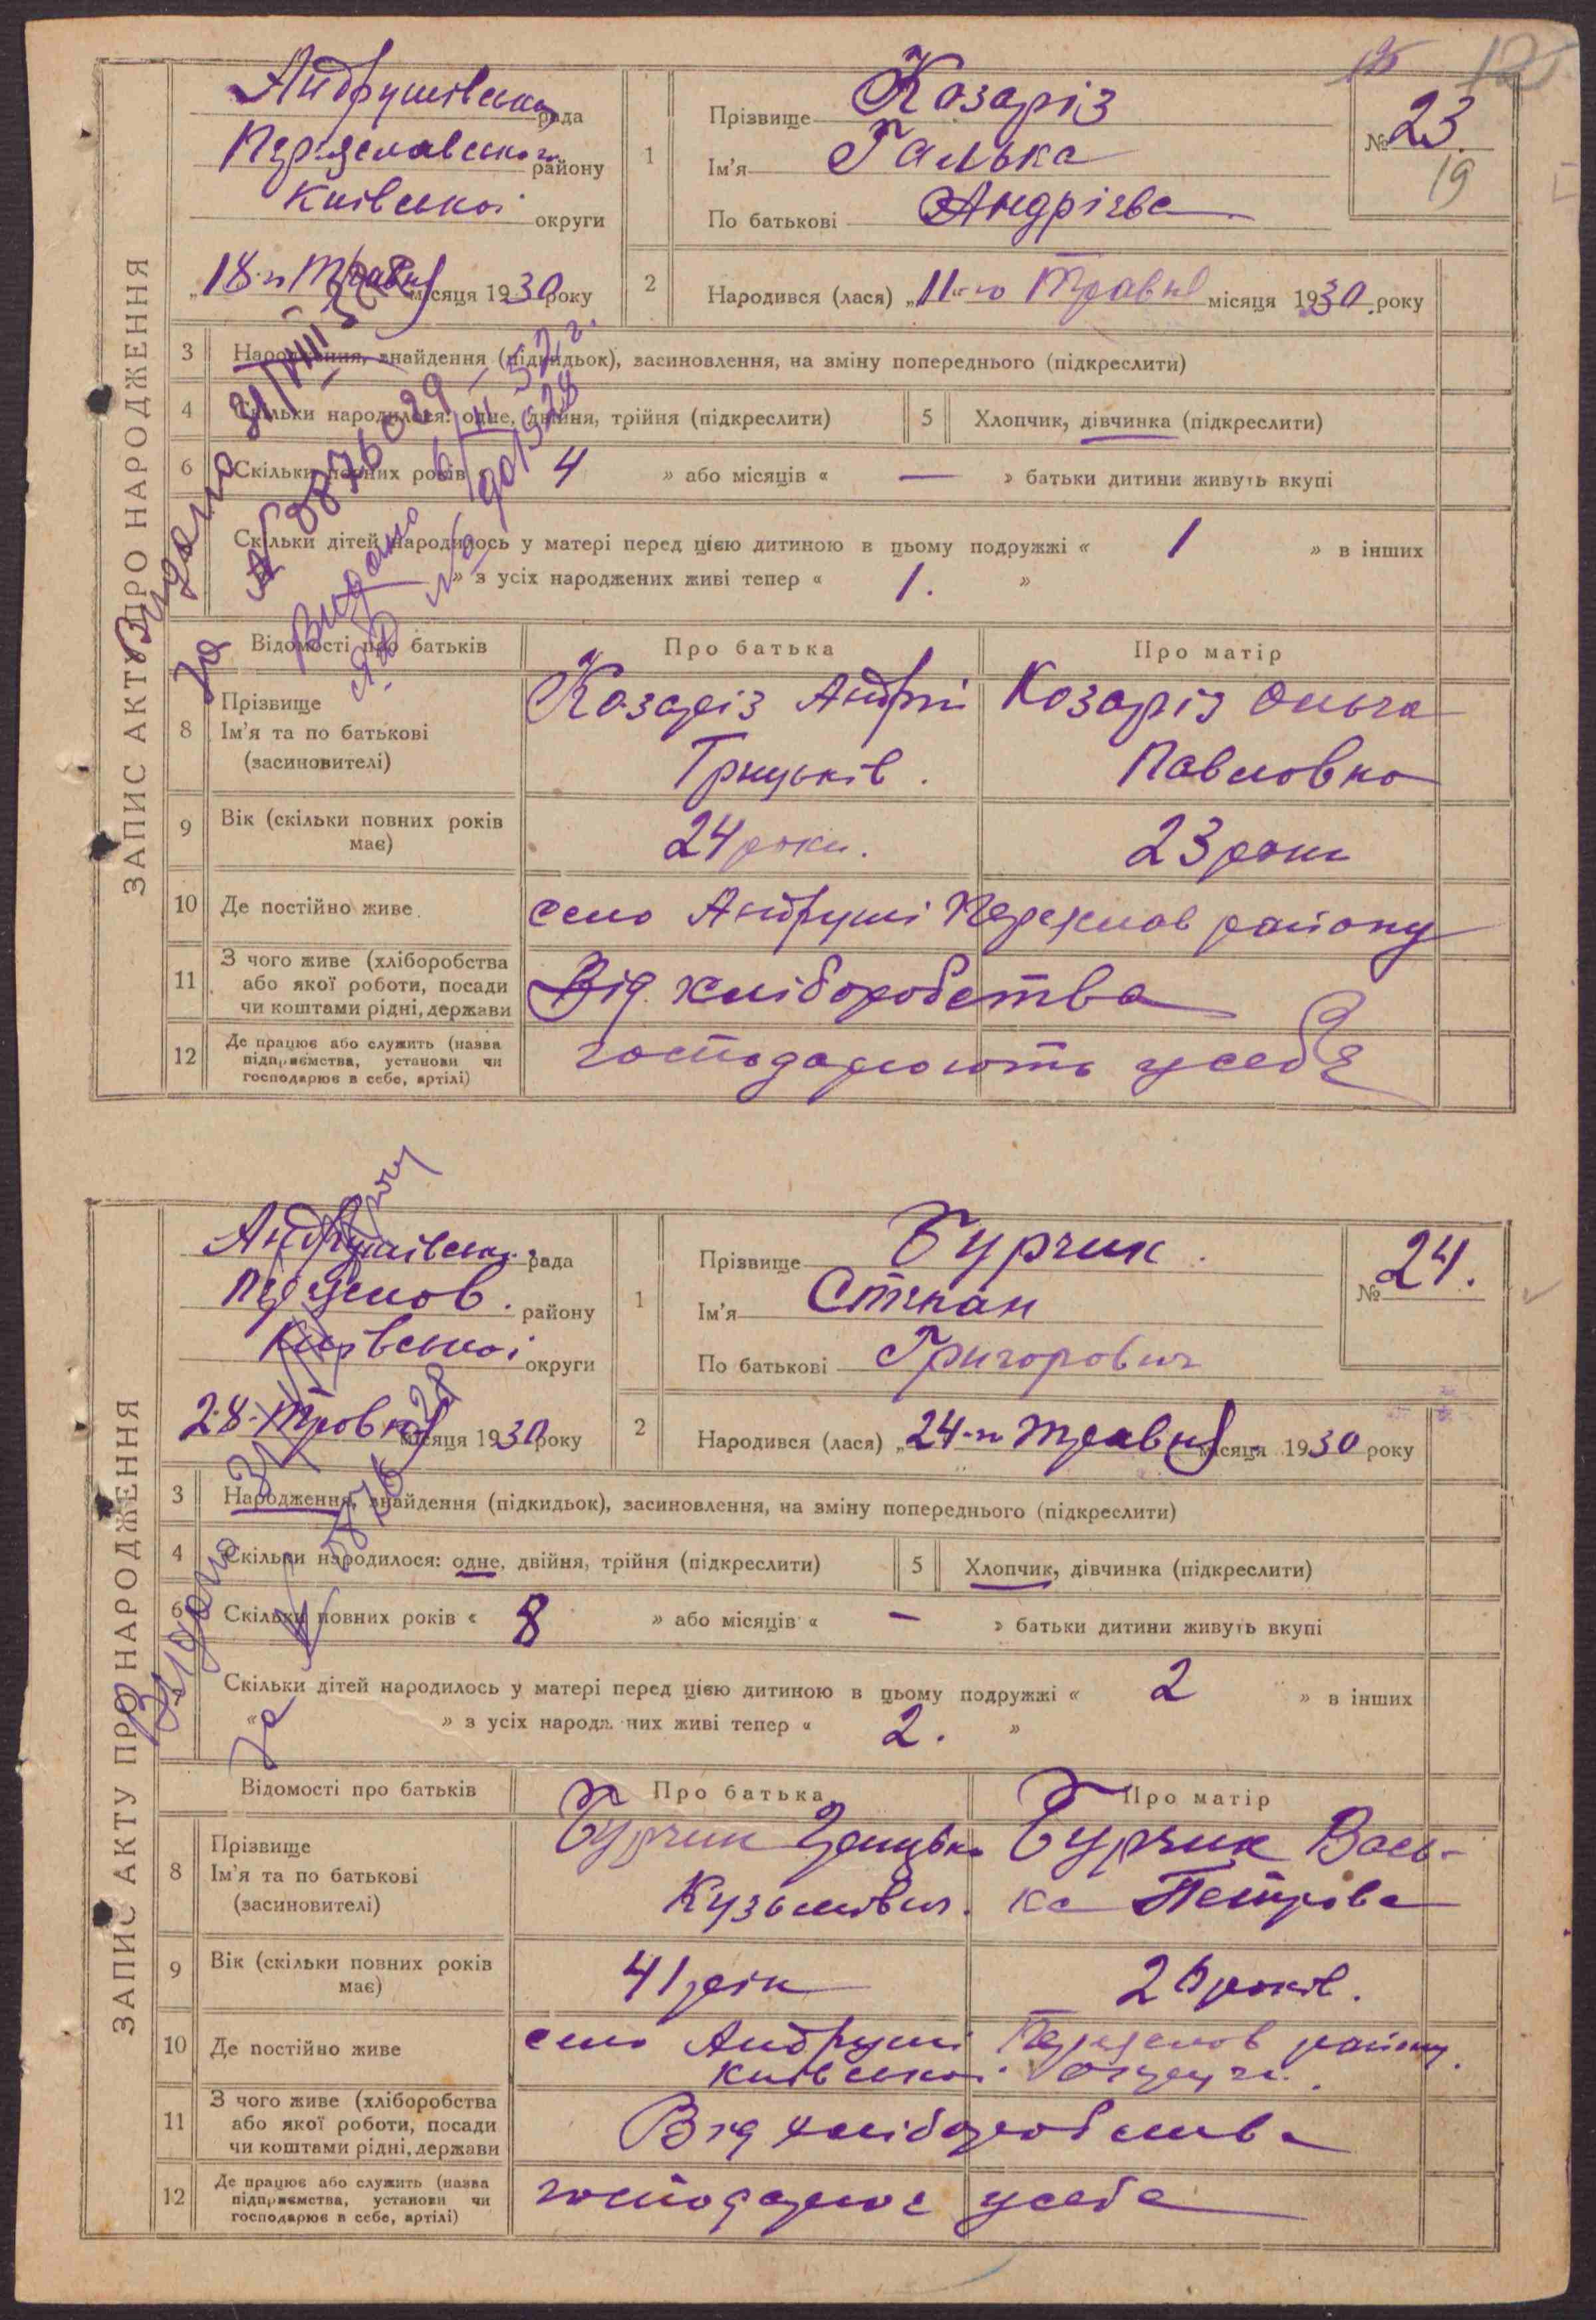 125
ЗАПИС АКТУ ПРО НАРОДЖЕННЯ
Андрушівська рада
Переяславського району
Київської округи
„18-го Травня місяця 1930 року
1 Прізвище Козаріз
Ім'я Галька
По батькові Андріївна
№ 23.
19
2 Народився (лася) „11"-го Травня місяця 1930 року
3 Народження, знайдення (підкидьок), засиновлення, на зміну попереднього (підкреслити)
4 Скільки народилося: одне, двійня, трійня (підкреслити) 5 Хлопчик, дівчинка (підкреслити)
6 Скільки повних років « 4 » або місяців « — » батьки дитини живуть вкупі
Скільки дітей народилось у матері перед цією дитиною в цьому подружжі « 1 » в інших
» з усіх народжених живі тепер « 1. »
Видано
За № 0876029
Видано
Відомості про батьків Про батька Про матір
8 Прізвище
Ім'я та по батькові
(засиновителі)
Козаріз Андрій
Грицьків.
Козаріз Ольга
Павловна
9 Вік (скільки повних років
має)
24 роки. 23 роки
10 Де постійно живе село Андруші Переяслав району
11 З чого живе (хліборобства
або якої роботи, посади
чи коштами рідні, держави
Від хліборобства
12 Де працює або служить (назва
підприємства, установи чи
господарює в себе, артілі)
господарюють у себе
ЗАПИС АКТУ ПРО НАРОДЖЕННЯ
Андрушівська рада
Переяслов. району
Київської округи
28-Травня місяця 1930 року
1 Прізвище Бурчик.
Ім'я Степан
По батькові Григорович
№ 24.
2 Народився (лася) „24-го Травня місяця 1930 року
3 Народження, знайдення (підкидьок), засиновлення, на зміну попереднього (підкреслити)
4 Скільки народилося: одне, двійня, трійня (підкреслити) 5 Хлопчик, дівчинка (підкреслити)
6 Скільки повних років « 8 » або місяців « — » батьки дитини живуть вкупі
Скільки дітей народилось у матері перед цією дитиною в цьому подружжі « 2 » в інших
« » з усіх народжених живі тепер « 2. »
Видано
За № 0876028
Відомості про батьків Про батька Про матір
8 Прізвище
Ім'я та по батькові
(засиновителі)
Бурчик Грицько
Кузьмович.
Бурчик Вась-
ка Петрівна
9 Вік (скільки повних років
має)
41 рік 26 років.
10 Де постійно живе село Андруші Переяслов району.
Київської округи.
11 З чого живе (хліборобства
або якої роботи, посади
чи коштами рідні, держави
Від хліборобства
12 Де працює або служить (назва
підприємства, установи чи
господарює в себе, артілі)
господарює у себе